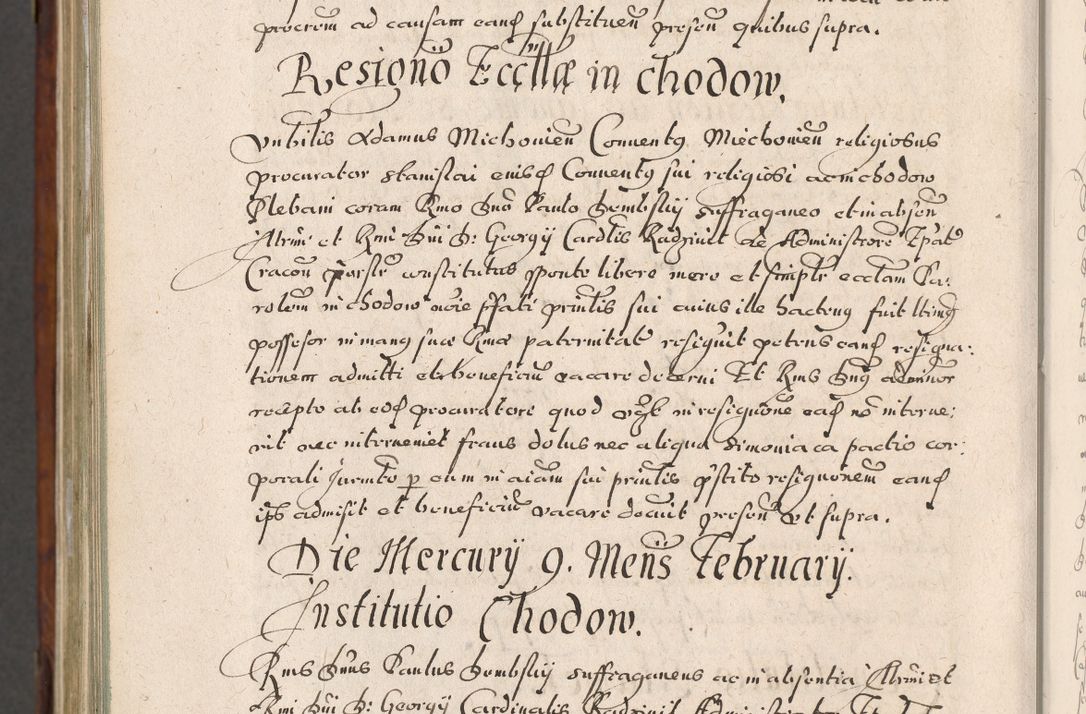 procrem ad causam eand substituen presen quibus supra.
Resignõ Ecctlæ in Chodow.
Vnbilis Adamus Miechowien Conuentq Miechouien religiosus
procurator Stanislai eiusd Conuentq sui religiosi ac in chodow
Plebani coram Rmo Dno Paulo Dembskij Suffraganeo et in absen
Illrmi et Rmi Dni D. Georgij Cardlis Radziuil ac Administrore Epat
Cracou psonlr constitutus sponte libere mero et simplr ecclam Pa:
rolem in chodow noie pfati prinlis sui cuius ille hactenq fuit lltimq
possesor in manq suæ Rmæ paternitat resignit petens eand resigna:
tionem admitti et beneficiũ vacare decerni Et Rms Dnq
recepto ab eod procuratore quod in resignõne ead nõ interue:
rit nec interueniet fraus dolus nec aliqua Simoniaca pactio cor:
porali Jurmto p eum in aiam sui prinlis pstito resignõnem eand
ips admisit et beneficiũ vacare decreuit presen vt supra.
Die Mercurij 9. Mens Februarij.
Institutio Chodow.
Rms Dnus Paulus Dembskij suffraganeus ac in absentia Illrmi et
Rmi Dni D. Georgij Cardinalis Radziuil Administrator